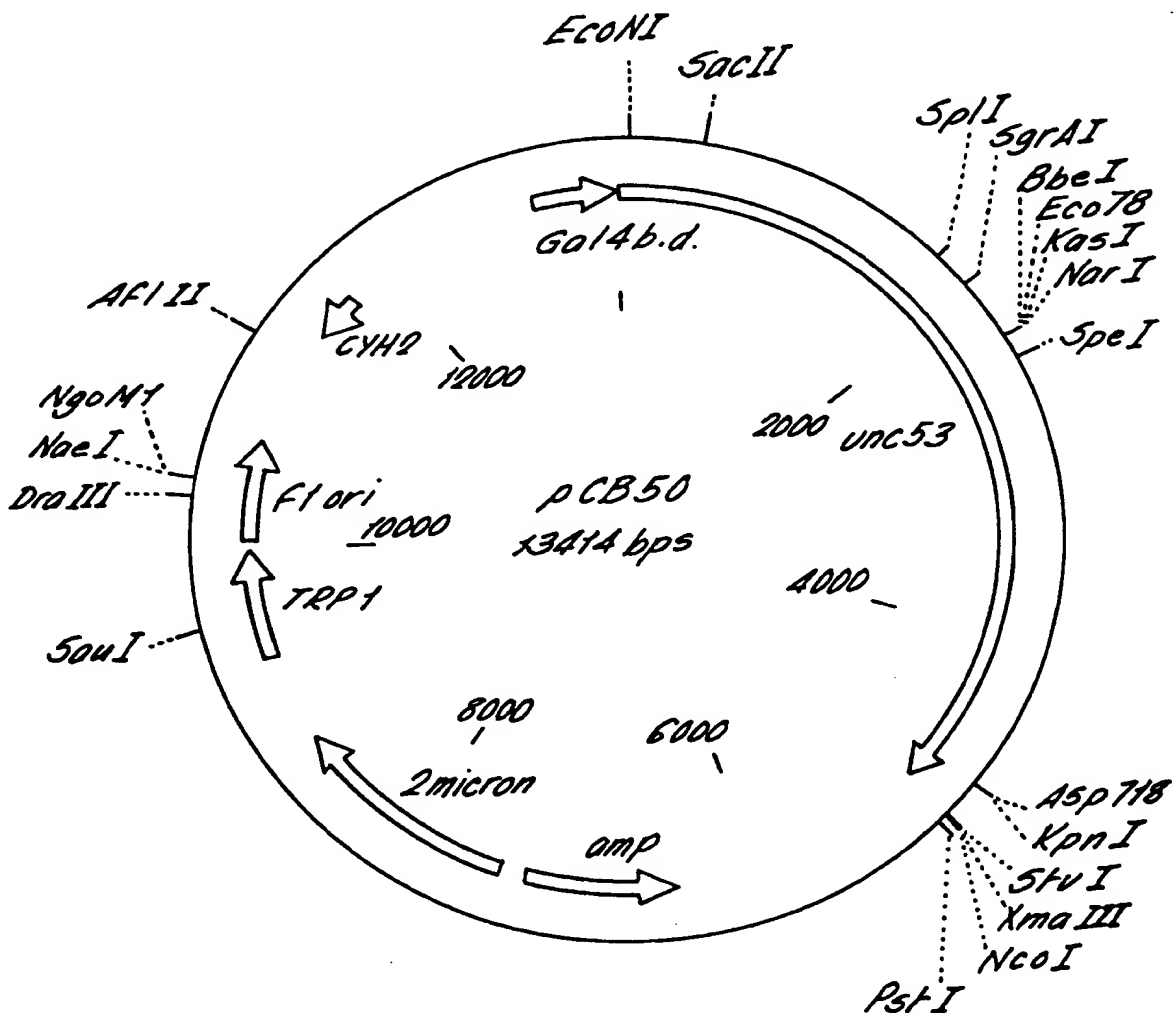 EcoNI
SacII
SplI
SgrAI
BbeI
Eco78
KasI
NarI
SpeI
Gal4 b.d.
AflII
CYH2
12000
NgoM1
NaeI
DraIII
2000
unc53
F1 ori
10000
pCB50
13414 bps
4000
TRP1
SauI
8000
6000
2micron
amp
Asp718
KpnI
StuI
XmaIII
NcoI
PstI